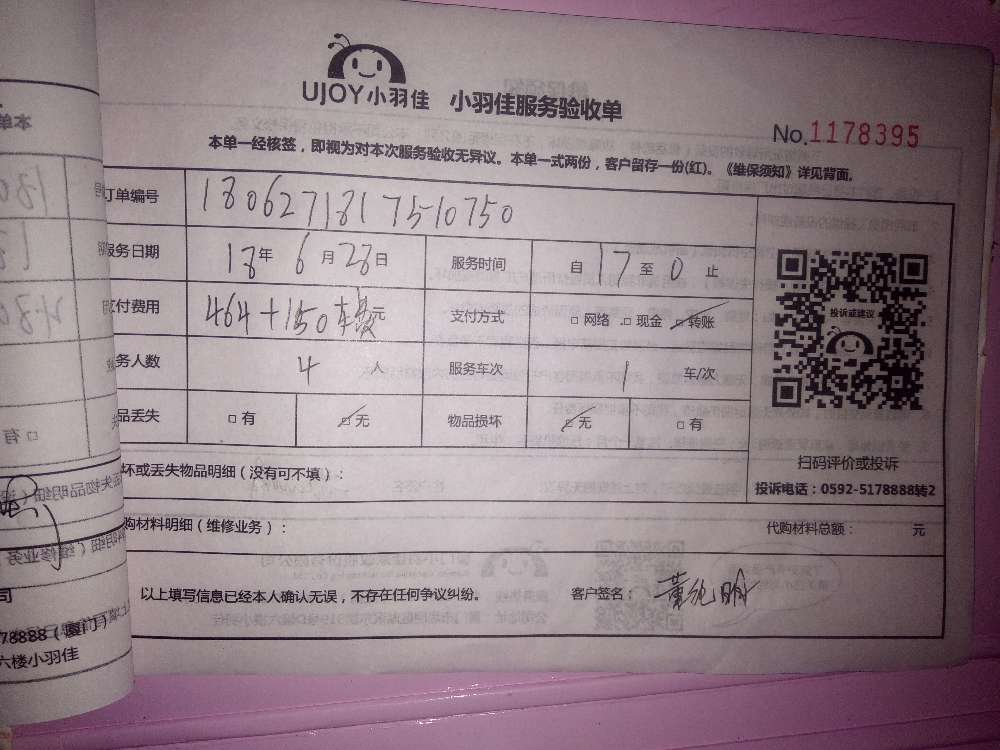 UJOY小羽佳 小羽佳服务验收单
No.1178395
本单一经核签，即视为对本次服务验收无异议。本单一式两份，客户留存一份(红)。《维保须知》详见背面。
订单编号 1806271817510750
服务日期 18年6月28日 服务时间 自17至0止
付费用 464+150车费元 支付方式 □网络 □现金 □转账
务人数 4人 服务车次 1车/次
品丢失 □有 □无 物品损坏 □无 □有
投诉或建议
扫码评价或投诉
投诉电话：0592-5178888转2
坏或丢失物品明细（没有可不填）：
购材料明细（维修业务）： 代购材料总额： 元
以上填写信息已经本人确认无误，不存在任何争议纠纷。 客户签名：
司
78888（厦门）
六楼小羽佳